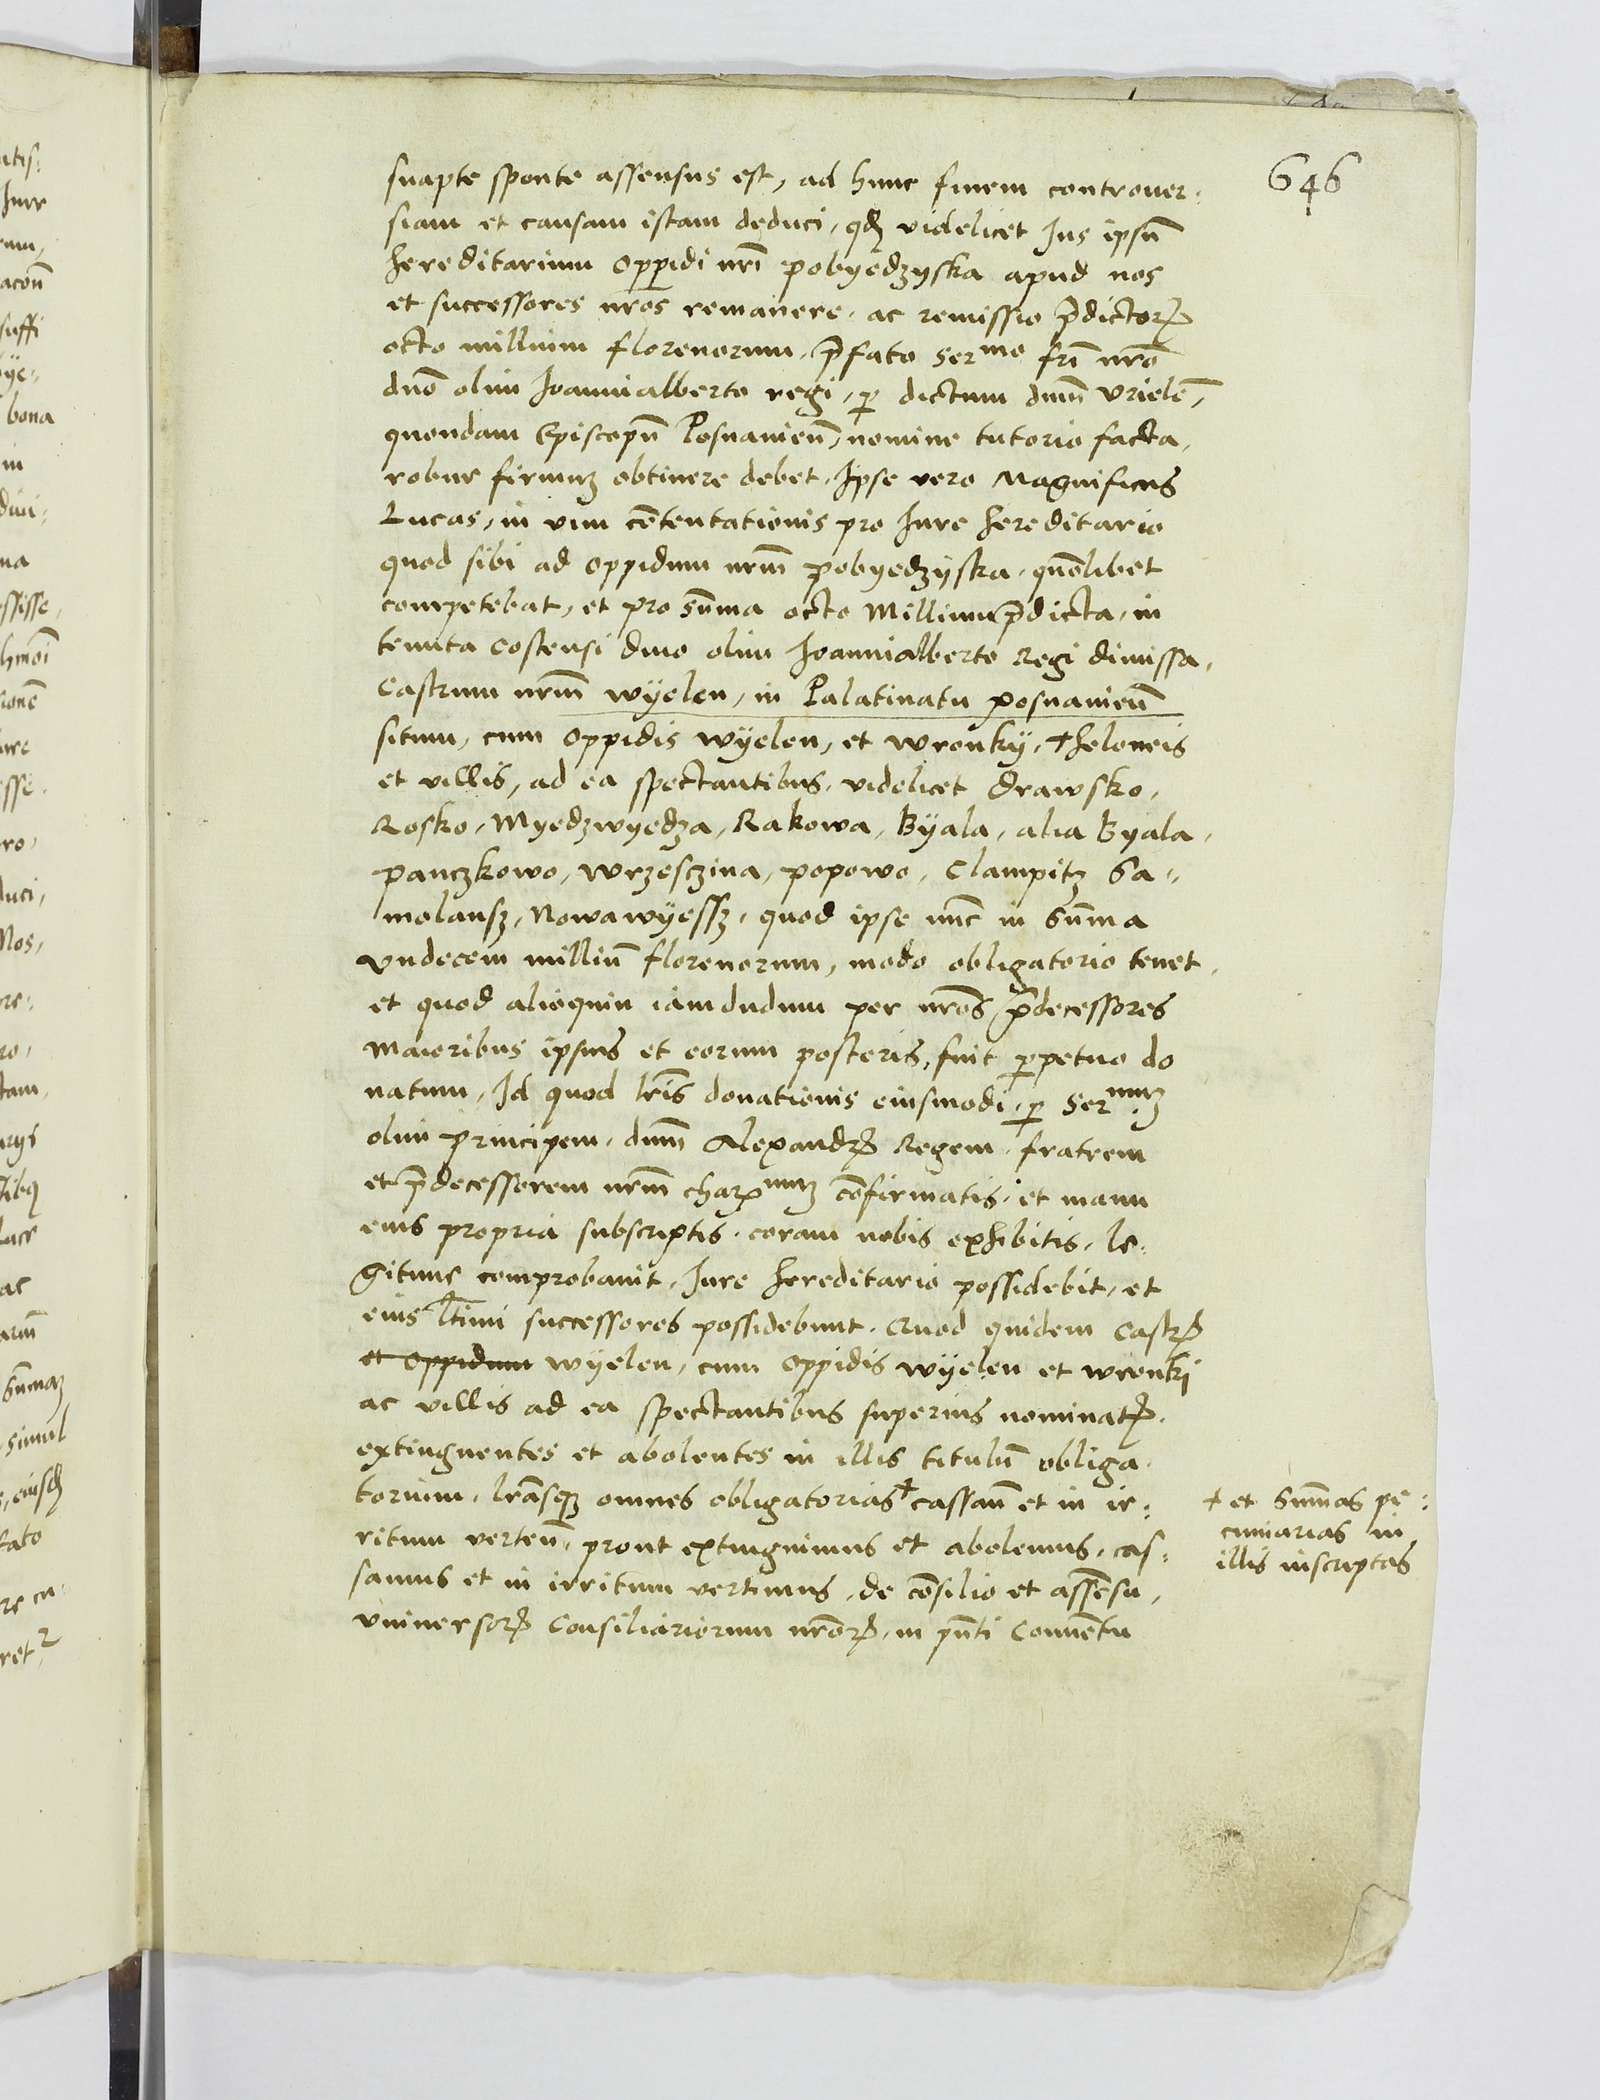 646
suapte sponte assensus est, ad hunc finem controuer-
siam et causam istam deduci, qd videlicet Ius ipsū
hereditarium oppidi nrī pobyedzyska apud nos
et successores nros remanere, ac remissio p̄dictorꝝ
octo millium florenorum, p̄fato sermo frī nrō
dnō olim Ioannialberto regi, ꝑ dictum dnm̄ Vrielē,
quondam Episcopū Posnanieñ, nomine tutorio facta,
robur firmuꝫ obtinere debet. Ipse vero Magnificus
Lucas, in vim cōtentationis pro Iure hereditario
quod sibi ad oppidum nrm̄ pobyedzyska, quōlibet
competebat, et pro sūma octo Millium p̄dicta, in
tenuta Costensi dno olim Ioannialberto Regi dimissa,
Castrum nrm̄ wyelen, in Palatinatu posnanieñ
situm, cum oppidis wyelen, et wronky, theloneis
et villis, ad ea spectantibus, videlicet Drawsko,
Rosko, Myedzwyedza, Rakowa, Byala, alia Byala,
panczkowo, wrzesczina, popowo, Clampitz Sa-
molansz, Nowawyessz, quod ipse nūc in Sūma
vndecem milliū florenorum, modo obligatorio tenet,
et quod alioquin iamdudum per nrōs p̄decessores
Maioribus ipsius et eorum posteris, fuit ꝑpetuo do
natum, Id quod lrīs donationis eiusmodi, ꝑ sermuꝫ
olim principem, dnm̄ Alexandrꝝ Regem, fratrem
et p̄decessorem nrm̄ charmuꝫ cōfirmatis, et manu
eius propria subscriptis, coram nobis exhibitis, le-
gitime comprobauit, Iure hereditario possidebit, et
eius ltīmi successores possidebunt. Quod quidem Castrꝝ
et oppidum wyelen, cum oppidis wyelen et wronki
ac villis ad ea spectantibus superius nominatꝭ,
extinguentes et abolentes in illis titulū obliga-
torium, lrāsqꝫ omnes obligatorias ☩ cassañ et in ir-
ritum verteñ, prout extinguimus et abolemus, cas-
samus et in irritum vertimus, de cōsilio et assēsu,
vniuersorꝝ Consiliariorum nrōrꝝ, in pn̄ti Conuētu
☩ et Sum̄as pe-
cuniarias in
illis inscriptas